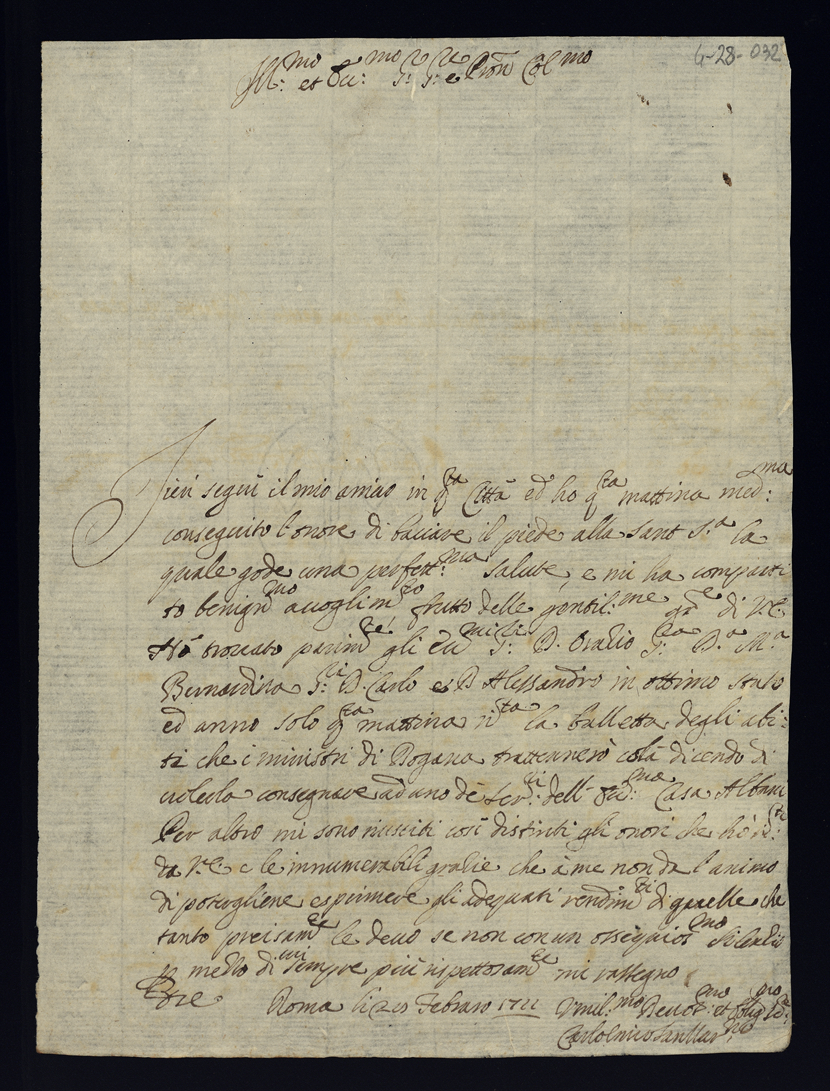 4-28-032
Ill:mo et Ecc:mo Sr: Sr: e Pron Col mo
Ieri seguì il mio arrivo in qta Città ed ho qta mattina med:ma
conseguito l'onore di baciare il piede alla Sant Sa la
quale gode una perfett:ma salute, e mi ha comparti
to benignmo accoglimto frutto delle gentil:me gre di V.E.
Hò trovato parimte gli Ecc:mi Sri: D. Oratio Sra Da Ma
Bernardina Sri: D. Carlo e D Alessandro in ottimo stato
ed anno solo qta mattina rta la balletta degli abi:
ti che i ministri di Dogana trattennero colà dicendo di
volerla consegnare ad uno dè Servri: dell' Ecc:ma Casa Albani
Per altro mi sono riusciti così distinti gli onori che hò rti:
da V.E. e le innumerabili gratie che à me non dà l'animo
di potergliene esprimere gli adequati rendimti di quelle che
tanto precisamte le devo se non con un ossequiosmo silentio
p mezzo di cui sempre più rispettosamte mi rassegno
Roma li 20 Febraro 1722 Umil:mo Devot:mo et Oblig